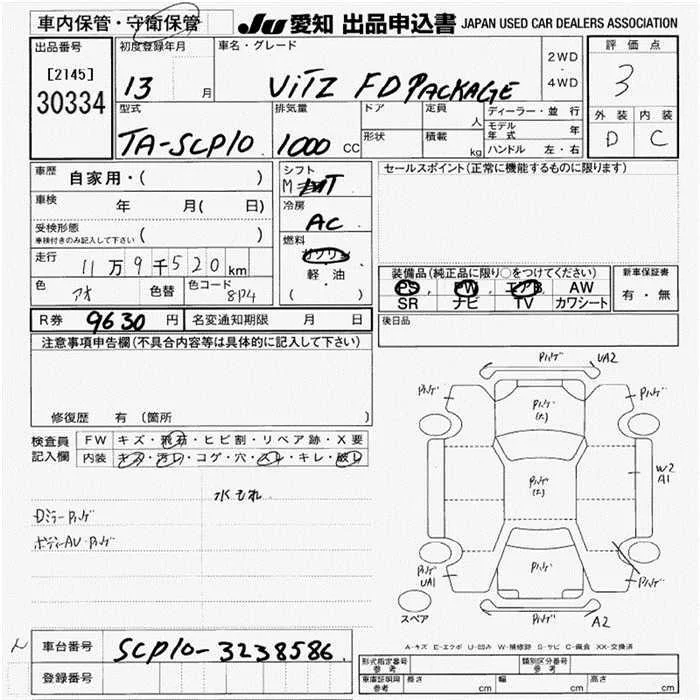 車内保管・守衛保管
JU 愛知 出品申込書 JAPAN USED CAR DEALERS ASSOCIATION
出品番号
[2145]
30334
初度登録年月
13 月
車名・グレード
ViTZ FD PACKAGE
2WD
・
4WD
評価点
3
外装 内装
D C
型式
TA-SCP10
排気量
1000 CC
ドア
形状
定員
人
積載
kg
ディーラー・並行
モデル年式 年
ハンドル 左・右
車歴
自家用・( )
車検
年 月( 日)
受検形態
車検付きのみ記入して下さい ( )
走行
11万9千520km
色
アオ
色替
色コード
8P4
シフト
冷房
AC
燃料
ガソリン
軽・油
( )
セールスポイント(正常に機能するものに限ります)
装備品(純正品に限り○をつけてください)
PS PW エアB AW
SR ナビ TV カワシート
新車保証書
有・無
後日品
R券 9630 円
名変通知期限 月 日
注意事項申告欄(不具合内容等は具体的に記入して下さい)
修復歴 有 〔箇所 〕
検査員
記入欄
FW キズ・飛石・ヒビ割・リペア跡・X要
内装 キズ・汚レ・コゲ・穴・スレ・キレ・破レ
水もれ
DミラーPハゲ
ボディーAU・Pハゲ
Pハゲ UA2
Pハゲ
Pハゲ
Pハゲ
(大)
W2
A1
Pハゲ
(大)
Pハゲ
UA1
Pハゲ
Pハゲ
Pハゲ A2
スペア
A-キズ E-エクボ U-凹み W-補修跡 S-サビ C-腐食 XX-交換済
車台番号 SCP10-3238586
登録番号
形式指定番号
参考
類別区分番号
参考
車庫証明用
参考
長さ cm 幅 cm 高さ cm